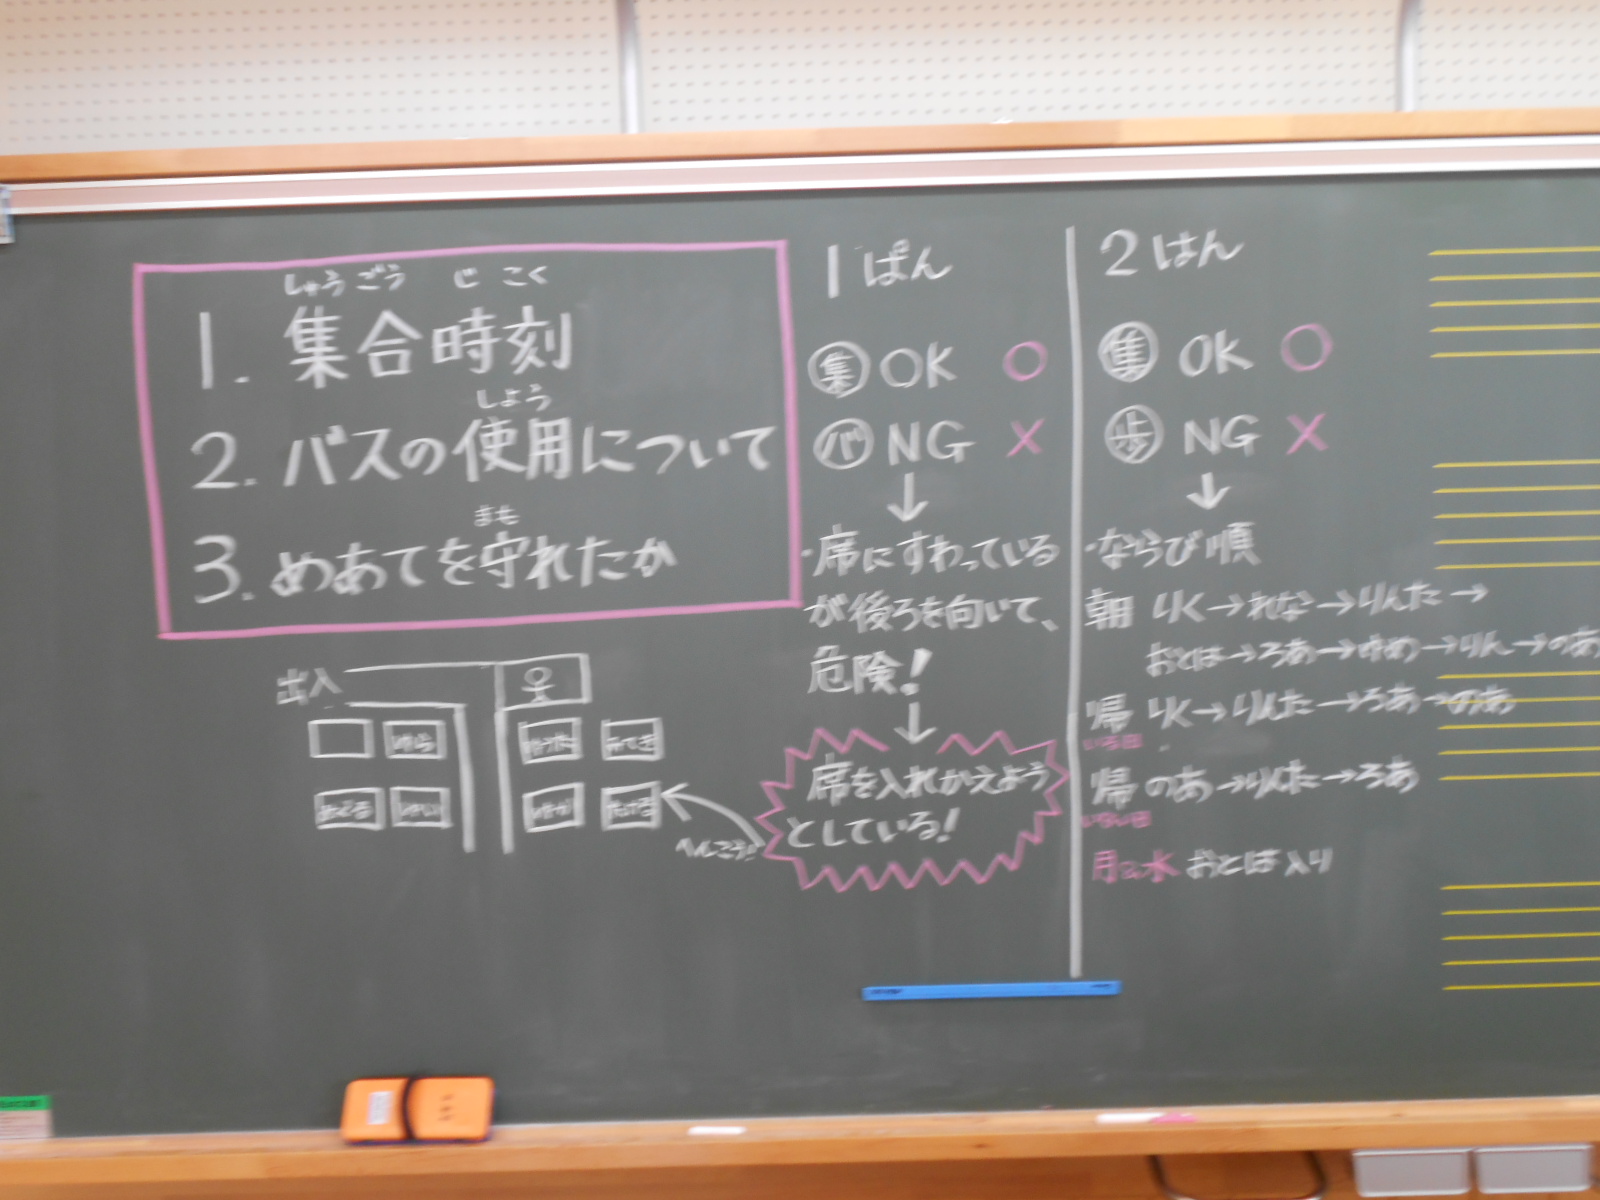 しゅうごう じこく
1. 集合時刻
しよう
2. バスの使用について
まも
3. めあてを守れたか
出入
へんこう!
1ぱん
集 OK ○
バ NG ×
↓
・席にすわっている
が後ろを向いて、
危険!
↓
席を入れかえよう
としている!
2はん
集 OK ○
歩 NG ×
↓
・ならび順
朝 りく→れな→りんた→
おとは→ろあ→ゆめ→りん→のあ
帰 りく→りんた→ろあ→のあ
いる日
帰 のあ→りんた→ろあ
いない日
月 水 おとは入り